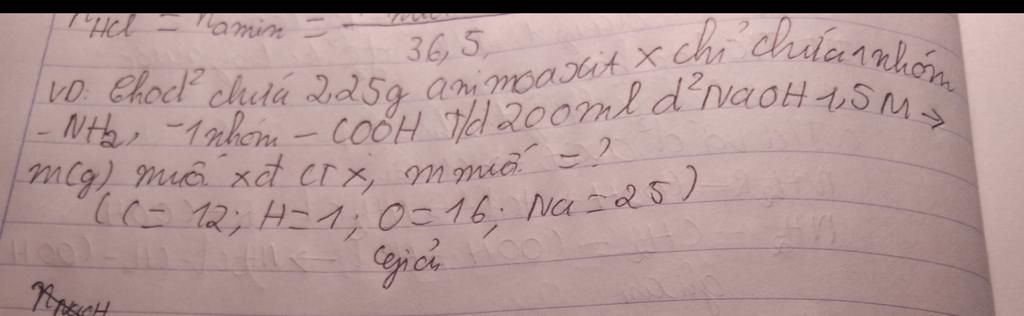 nHCl = namin =
36,5
VD: Cho d² chứa 2,25g animoaxit x chỉ chứa 1 nhóm
- NH2, - 1 nhóm - COOH T/d 200ml d² NaOH 1,5M →
m(g) muối xđ CT x, m muối = ?
(C = 12; H = 1; O = 16; Na = 25)
Giải
nNaOH